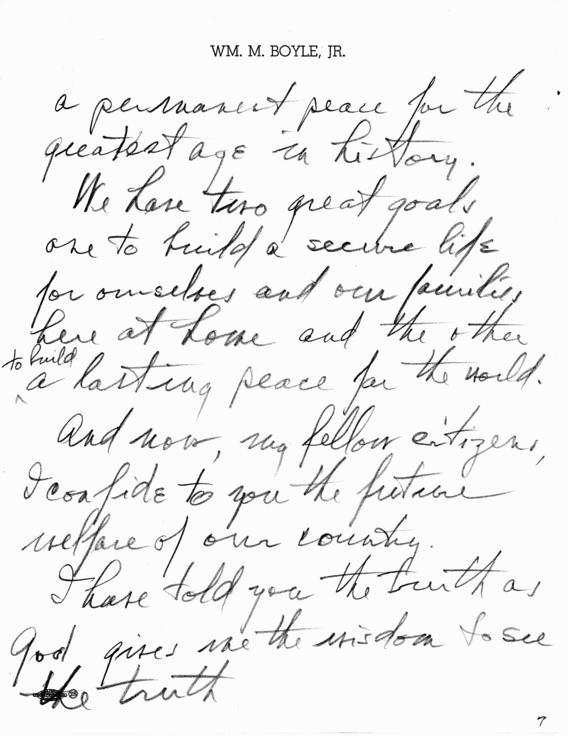 WM. M. BOYLE, JR.
a permanent peace for the
greatest age in history.
We have two great goals
one to build a secure life
for ourselves and our families
here at home and the other
to build
a lasting peace for the world.
And now, my fellow citizens,
I confide to you the future
welfare of our country.
I have told you the truth as
God gives me the wisdom to see
the truth
7